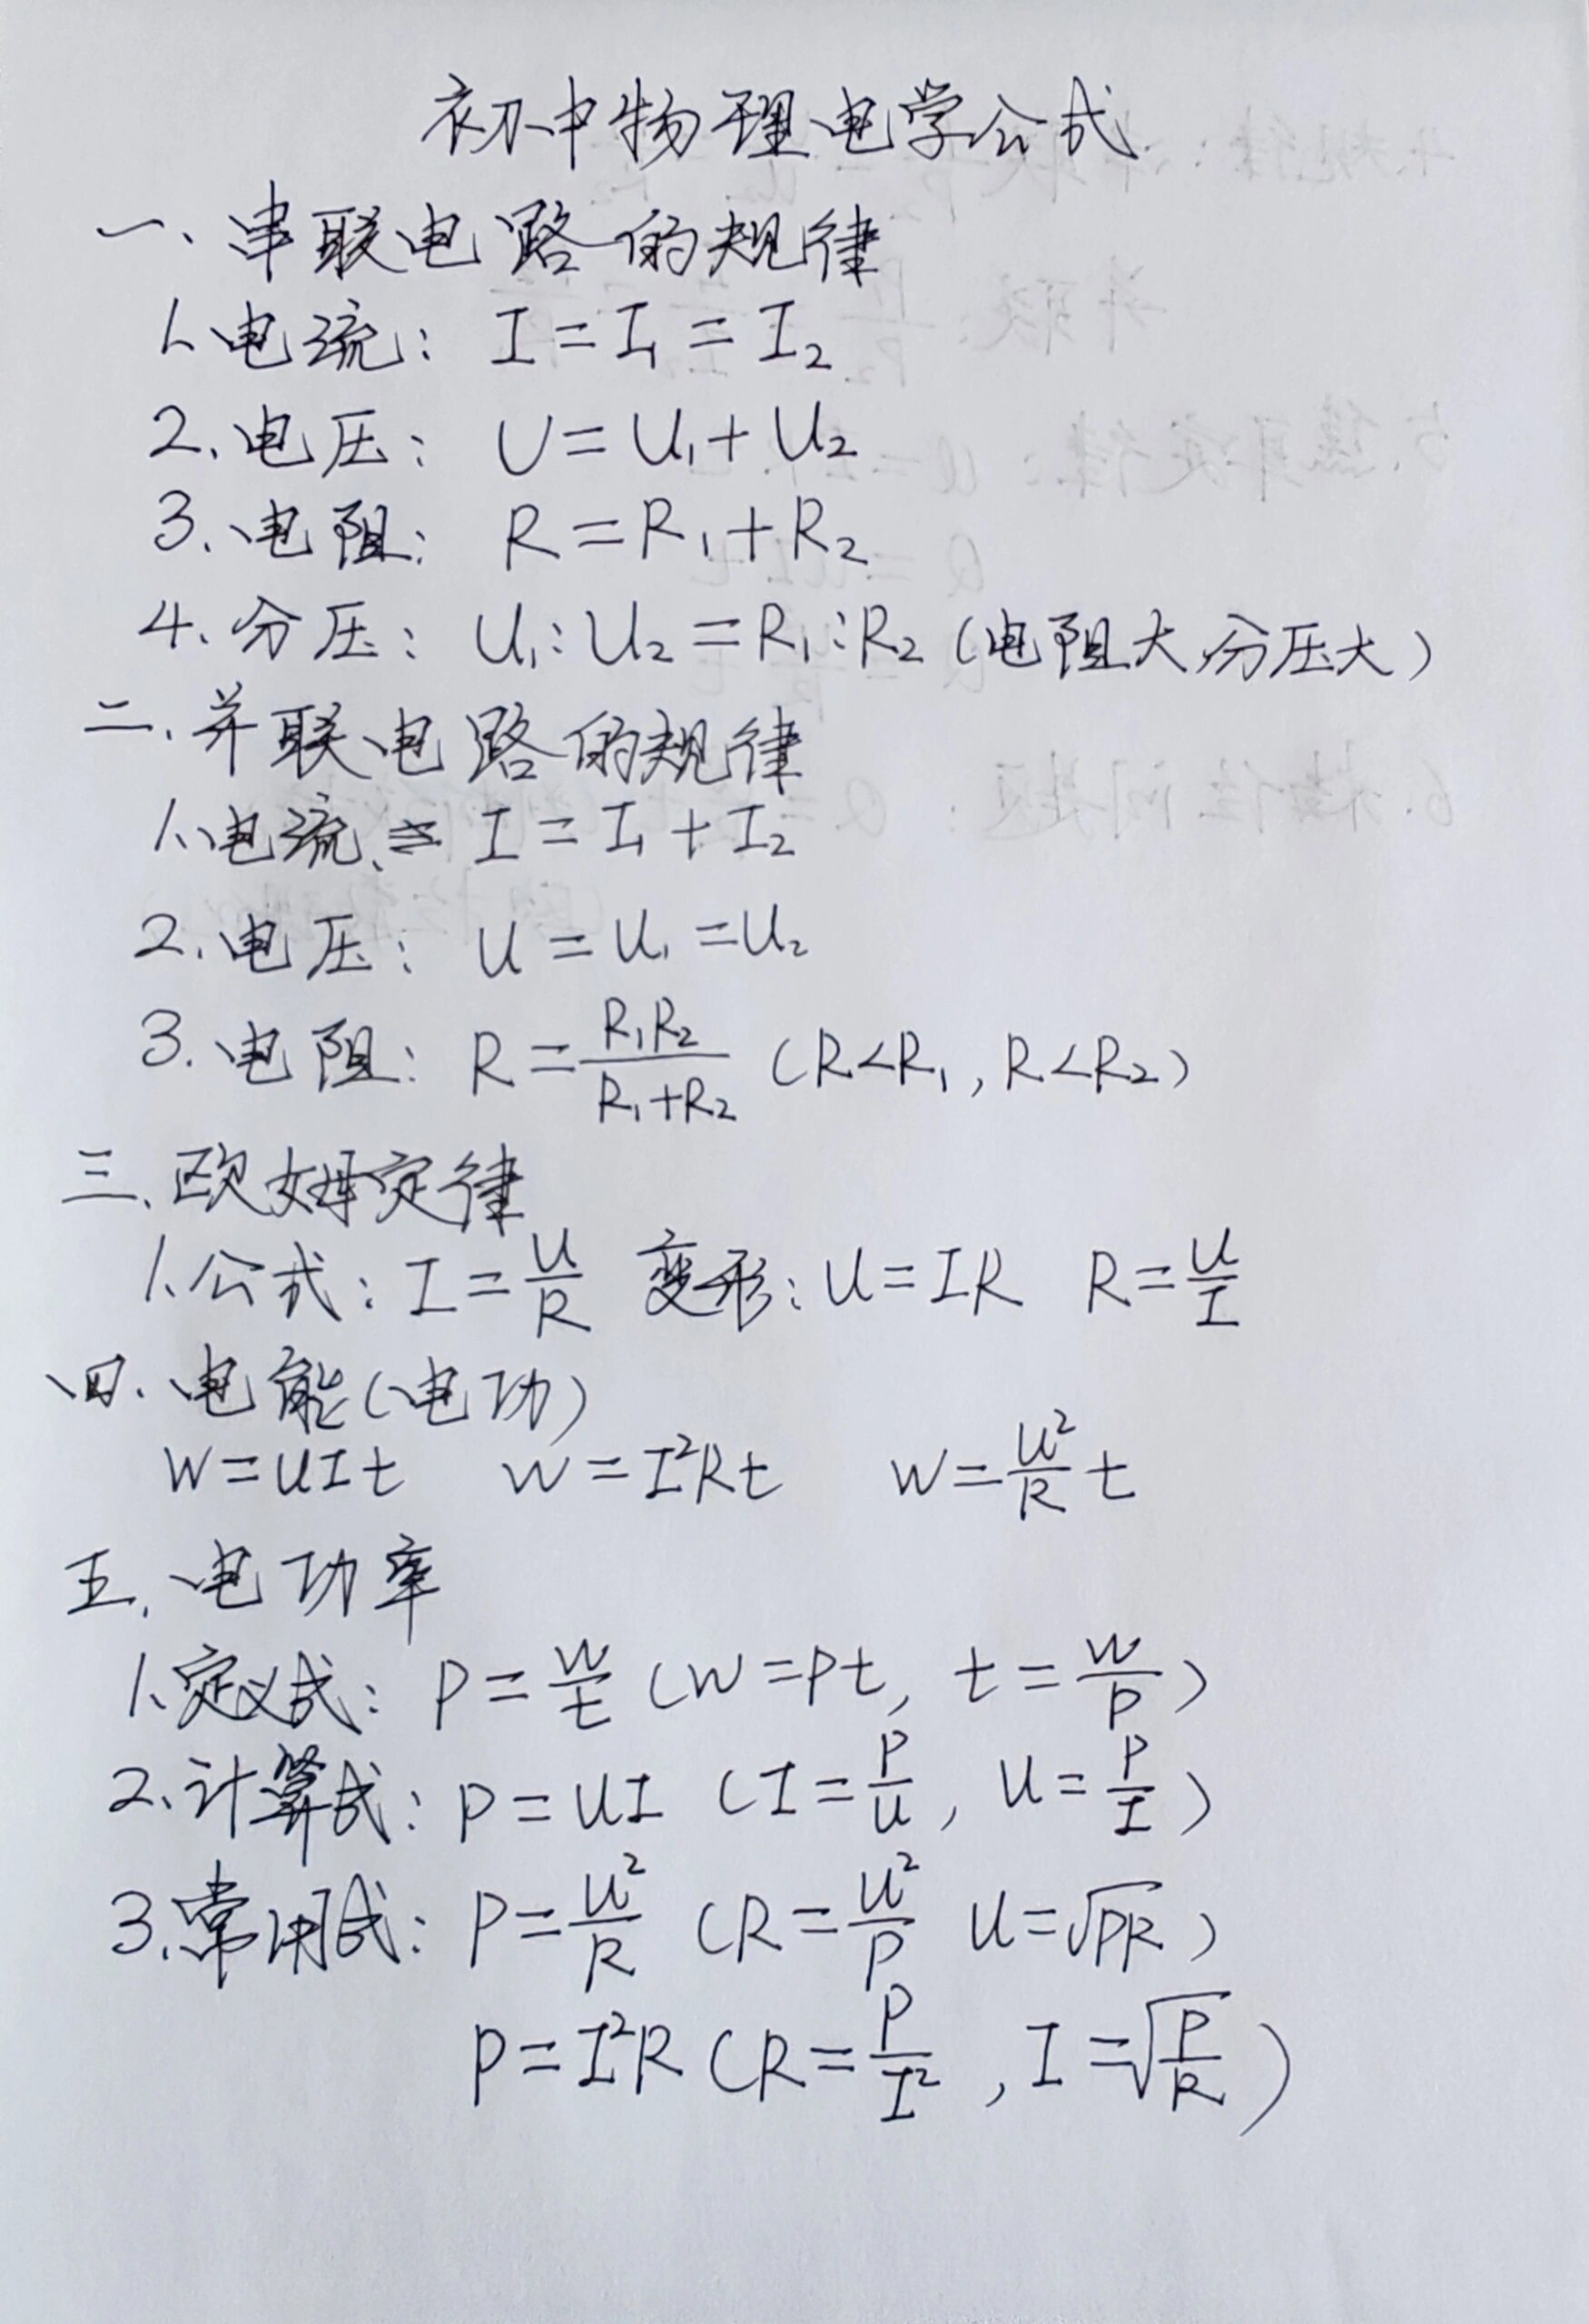 初中物理电学公式
一、串联电路的规律
1、电流：I=I₁=I₂
2、电压：U=U₁+U₂
3、电阻：R=R₁+R₂
4、分压：U₁:U₂=R₁:R₂（电阻大,分压大）
二、并联电路的规律
1、电流：I=I₁+I₂
2、电压：U=U₁=U₂
3、电阻：R=R₁R₂/(R₁+R₂)（R<R₁,R<R₂）
三、欧姆定律
1、公式：I=U/R 变形：U=IR R=U/I
四、电能（电功）
W=UIt W=I²Rt W=U²/R t
五、电功率
1、定义式：P=W/t（W=Pt, t=W/P）
2、计算式：P=UI（I=P/U, U=P/I）
3、常用式：P=U²/R（R=U²/P U=√PR）
P=I²R（R=P/I², I=√(P/R)）